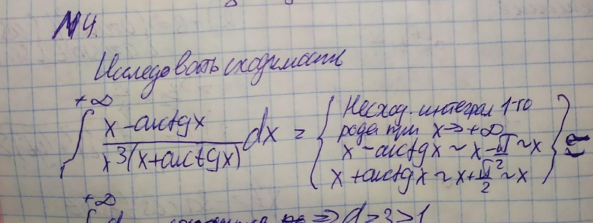 №4.
Исследовать сходимость
+∞
∫ x-arctgx / x³(x+arctgx) dx = { Несход. интеграл 1-го
1
рода при x→+∞
x-arctgx ~ x-π/2 ~ x
x+arctgx ~ x+π/2 ~ x }
+∞